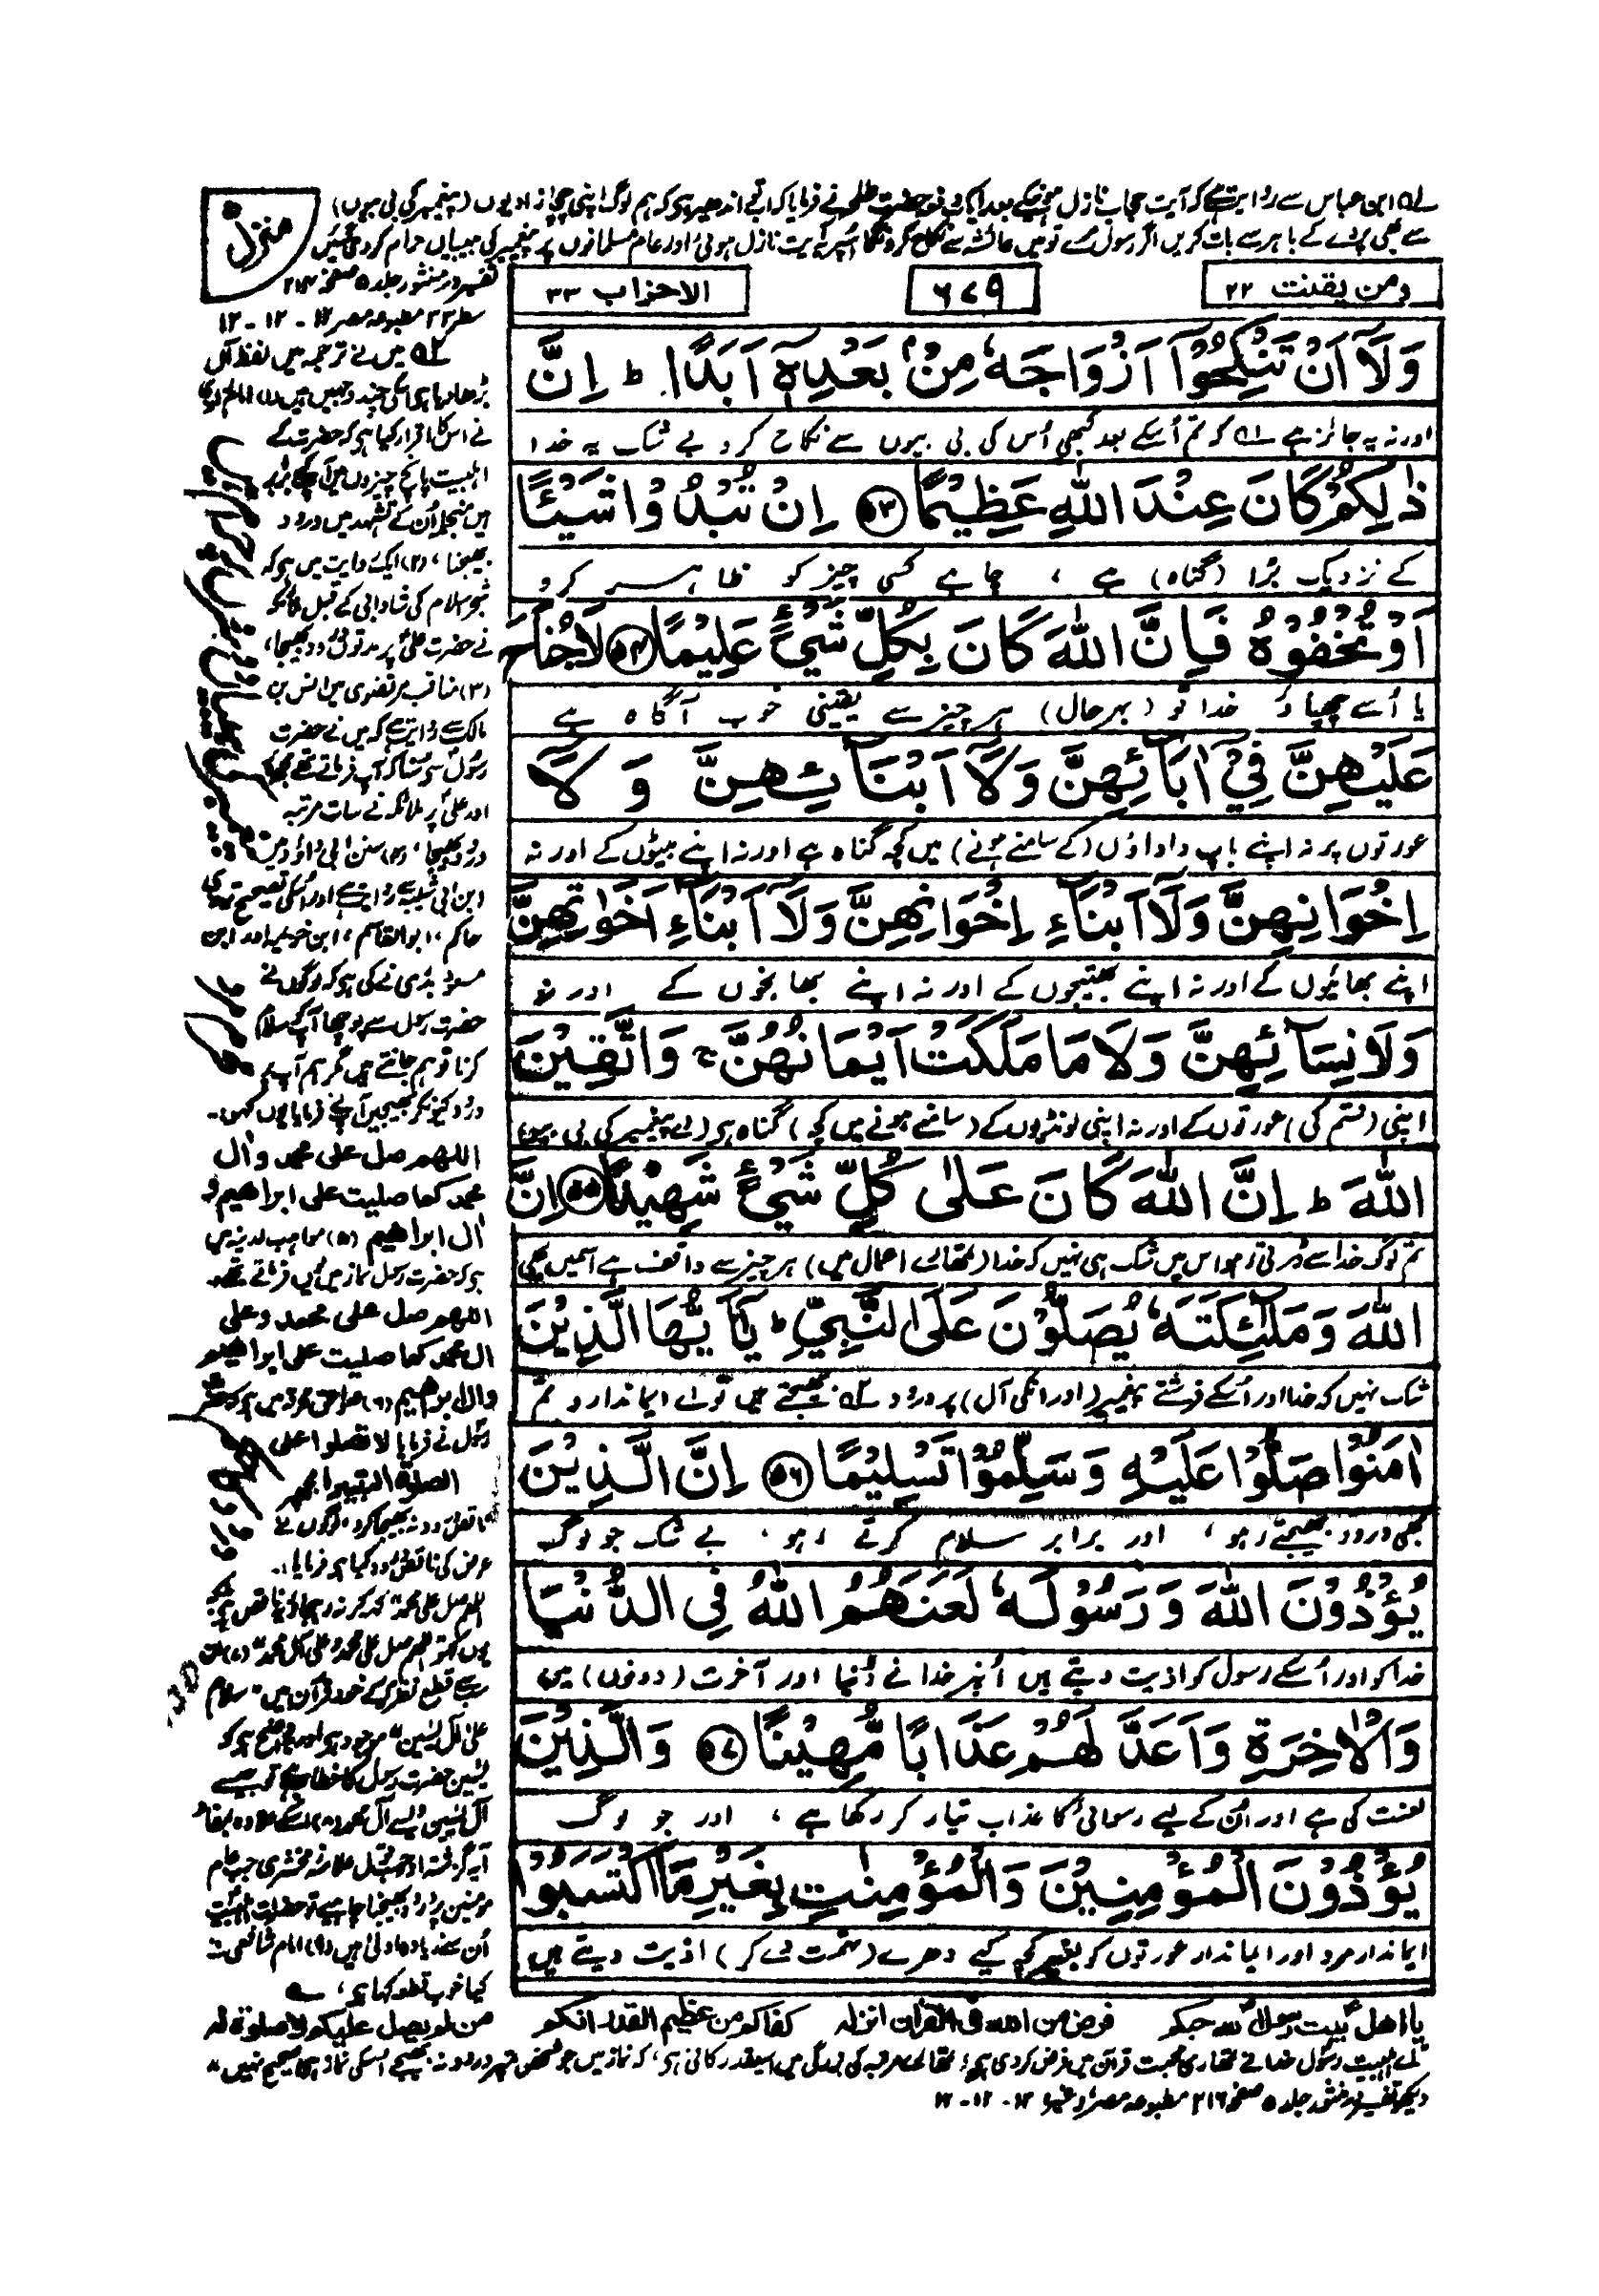 لے ابن عباس سے روایت ہے کہ آیت حجاب نازل ہونے کے بعد ایک دفعہ حضرت طلحہ نے فرمایا کہ اتنے اندھیر ہے کہ ہم لوگ اپنی چچازادیوں (پیغمبر کی بی بیوں)
سے بھی پردے کے باہر سے بات کریں اگر رسول مرے تو میں عائشہ سے نکاح کرونگا اُسپر یہ آیت نازل ہوئی اور عام مسلمانوں پر پیغمبر کی بیبیاں حرام کردی گئیں
منزل
تفسیر در منثور جلد ۵ صفحہ ۲۱۴
سطر ۲۲ مطبوعہ مصر ۱۲ - ۱۲ - ۱۲
ومن یقنت ۲۲
۶۷۹
الاحزاب ۳۳
وَلَآ اَنْ تَنْكِحُوْٓا اَزْوَاجَهٗ مِنْۢ بَعْدِهٖٓ اَبَدًا ؕ اِنَّ
اور نہ یہ جائز ہے کہ تم اُسکے بعد کبھی اُس کی بی بیوں سے نکاح کرو بے شک یہ خدا
ذٰلِكُمْ كَانَ عِنْدَ اللّٰهِ عَظِيْمًا ﴿۵۳﴾ اِنْ تُبْدُوْا شَيْئًا
کے نزدیک بڑا (گناہ) ہے ، چاہے کسی چیز کو ظاہر کرو
اَوْ تُخْفُوْهُ فَاِنَّ اللّٰهَ كَانَ بِكُلِّ شَيْءٍ عَلِيْمًا ﴿۵۴﴾ لَا جُنَاحَ
یا اُسے چھپاؤ خدا تو (بہرحال) ہر چیز سے یقینی خوب آگاہ ہے
عَلَيْهِنَّ فِيْٓ اٰبَآئِهِنَّ وَلَآ اَبْنَآئِهِنَّ وَلَآ
عورتوں پر نہ اپنے باپ داداؤں (کے سامنے ہونے) میں کچھ گناہ ہے اور نہ اپنے بیٹوں کے اور نہ
اِخْوَانِهِنَّ وَلَآ اَبْنَآءِ اِخْوَانِهِنَّ وَلَآ اَبْنَآءِ اَخَوٰتِهِنَّ
اپنے بھائیوں کے اور نہ اپنے بھتیجوں کے اور نہ اپنے بھانجوں کے اور نہ
وَلَا نِسَآئِهِنَّ وَلَا مَا مَلَكَتْ اَيْمَانُهُنَّ ۚ وَاتَّقِيْنَ
اپنی (قسم کی) عورتوں کے اور نہ اپنی لونڈیوں کے (سامنے ہونے میں کچھ) گناہ ہے (اے پیغمبر کی بی بیو)
اللّٰهَ ؕ اِنَّ اللّٰهَ كَانَ عَلٰى كُلِّ شَيْءٍ شَهِيْدًا ﴿۵۵﴾ اِنَّ
تم لوگ خدا سے ڈرتی رہو اس میں شک ہی نہیں کہ خدا (تمھارے اعمال میں) ہر چیز سے واقف ہے اسمیں بھی
اللّٰهَ وَمَلٰٓئِكَتَهٗ يُصَلُّوْنَ عَلَى النَّبِيِّ ؕ يٰٓاَيُّهَا الَّذِيْنَ
شک نہیں کہ خدا اور اُسکے فرشتے پیغمبر (اور انکی آل) پر درود بھیجتے ہیں تو اے ایماندارو تم
اٰمَنُوْا صَلُّوْا عَلَيْهِ وَسَلِّمُوْا تَسْلِيْمًا ﴿۵۶﴾ اِنَّ الَّذِيْنَ
بھی درود بھیجتے رہو ، اور برابر سلام کرتے رہو ، بے شک جو لوگ
يُؤْذُوْنَ اللّٰهَ وَرَسُوْلَهٗ لَعَنَهُمُ اللّٰهُ فِي الدُّنْيَا
خدا کو اور اُسکے رسول کو اذیت دیتے ہیں اُنپر خدا نے دُنیا اور آخرت (دونوں) میں
وَالْاٰخِرَةِ وَاَعَدَّ لَهُمْ عَذَابًا مُّهِيْنًا ﴿۵۷﴾ وَالَّذِيْنَ
لعنت کی ہے اور اُن کے لیے رسوائی کا عذاب تیار کر رکھا ہے ، اور جو لوگ
يُؤْذُوْنَ الْمُؤْمِنِيْنَ وَالْمُؤْمِنٰتِ بِغَيْرِ مَا اكْتَسَبُوْا
ایماندار مرد اور ایماندار عورتوں کو بغیر کچھ کیے دھرے (تہمت دے کر) اذیت دیتے ہیں
میں نے ترجمہ میں لفظ آل
بڑھا دیا ہے اسکی چند وجہیں ہیں (۱) امام رازی
نے اس کا اقرار کیا ہے کہ حضرت کے
اہلبیت پانچ چیزوں میں آپکے برابر
ہیں منجملہ اُن کے تشہد میں درود
بھیجنا ، (۲) ایک روایت میں ہے کہ
شجر اسلام کی شادابی کے قبل ملائکہ
نے حضرت علی پر مدتوں درود بھیجا ،
(۳) مناقب مرتضوی میں انس بن
مالک سے روایت ہے کہ میں نے حضرت
رسول سے سنا کہ آپ فرماتے تھے مجھ پر
اور علی پر ملائکہ نے سات مرتبہ
درود بھیجا ، (۴) سنن ابی داؤد میں
ابن ابی شیبہ سے روایت ہے اور اسکی تصحیح ترمذی
حاکم ، ابوالقاسم ، ابن خزیمہ اور ابن
مسعود بدری نے کی ہے کہ لوگوں نے
حضرت رسول سے پوچھا آپ کو سلام
کرنا تو ہم جانتے ہیں مگر ہم آپ پر
درود کیونکر بھیجیں آپنے فرمایا یوں کہو۔
اللهم صل علی محمد وال
محمد کما صلیت علی ابراهیم و
ال ابراهیم (۵) مواہب لدنیہ میں
ہے کہ حضرت رسول نماز میں یوں فرماتے تھے
اللهم صل علی محمد وعلی
ال محمد کما صلیت علی ابراهیم
وال ابراهیم (۶) صواعق محرقہ میں ہے کہ حضرت
رسول نے فرمایا لا تصلوا علی
الصلوة البتیرا مجھ پر
ناقص درود نہ بھیجا کرو ، لوگوں نے
عرض کی ناقص درود کیا ہے فرمایا۔
اللهم صل علی محمد کہہ کر نہ رہ جاؤ یہ ناقص ہے
یوں کہو اللهم صل علی محمد وعلی آل محمد (۷)
سب سے قطع نظر کرکے خود قرآن میں سلام
علی آل یٰسین موجود ہے اور یہ واضح ہے کہ
یٰسین حضرت رسول کا خطاب ہے تو جیسے
آل یٰسین ویسے آل محمد (۸) اسکے علاوہ بمفاد
آیہ گزشتہ اور بقول علامہ زمخشری جب عام
مومنین پر درود بھیجنا چاہیے تو حضرات اہلبیت
اُن سے زیادہ اولیٰ ہیں (۹) امام شافعی نے
کیا خوب قطعہ کہا ہے ،
یا اهل بیت رسول الله حبکم فرض من الله فی القران انزله کفاکم من عظیم القدر انکم من لم یصل علیکم لا صلوة له
اے اہلبیت رسول خدا نے تمھاری محبت قرآن میں فرض کردی ہے ، تمھارے مرتبہ کی بزرگی میں اسیقدر کافی ہے ، کہ نماز میں جو شخص تمپر درود نہ بھیجے اسکی نماز ہی صحیح نہیں
دیکھو تفسیر در منثور جلد ۵ صفحہ ۲۱۶ مطبوعہ مصر وغیرہ ۱۲ - ۱۲ - ۱۲